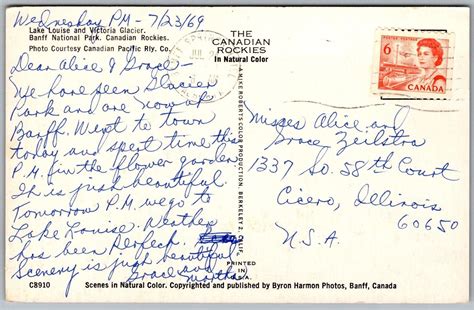 Wednesday PM - 7/23/69
Lake Louise and Victoria Glacier.
Banff National Park. Canadian Rockies.
Photo Courtesy Canadian Pacific Rly. Co.
Dear Alice & Grace -
We have seen Glacier
Park and are now at
Banff. Went to town
today and spent time this
P.M. in the flower garden
This is just beautiful.
Tomorrow P.M. we go to
Lake Louise. Weather
has been Perfect.
Scenery is just beautiful
Grace and
Martha
C8910
THE
CANADIAN
ROCKIES
In Natural Color
MIKE ROBERTS COLOR PRODUCTION, BERKELEY 2, CALIF.
PRINTED IN
U.S.A.
POSTES POSTAGE
6
CANADA
Misses Alice and
Grace Zeilstra
1337 So. 58th Court
Cicero, Illinois
60650
U.S.A.
Scenes in Natural Color. Copyrighted and published by Byron Harmon Photos, Banff, Canada